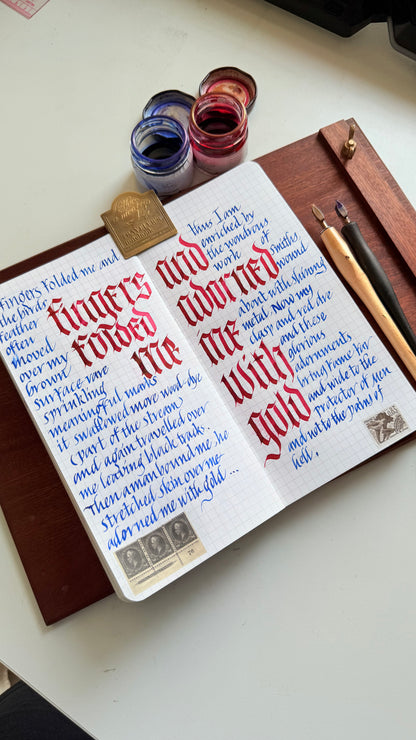 fingers folded me and
the birds
feather
often
moved
over my
brown
surface
sprinkling
meaningful marks
it swallowed more wood-dye
(part of the stream)
and again travelled over
me leaving black tracks.
Then a man bound me, he
stretched skin over me
adorned me with gold ...
fingers
folded
me
thus I am
enriched by
the wondrous
work of
Smiths,
wound
about with shining
metal. Now my
clasp and red dye
and these
glorious
adornments
bring fame far
and wide to the
protector of men
and not to the pains of
hell.
and
adorned
me
with
gold